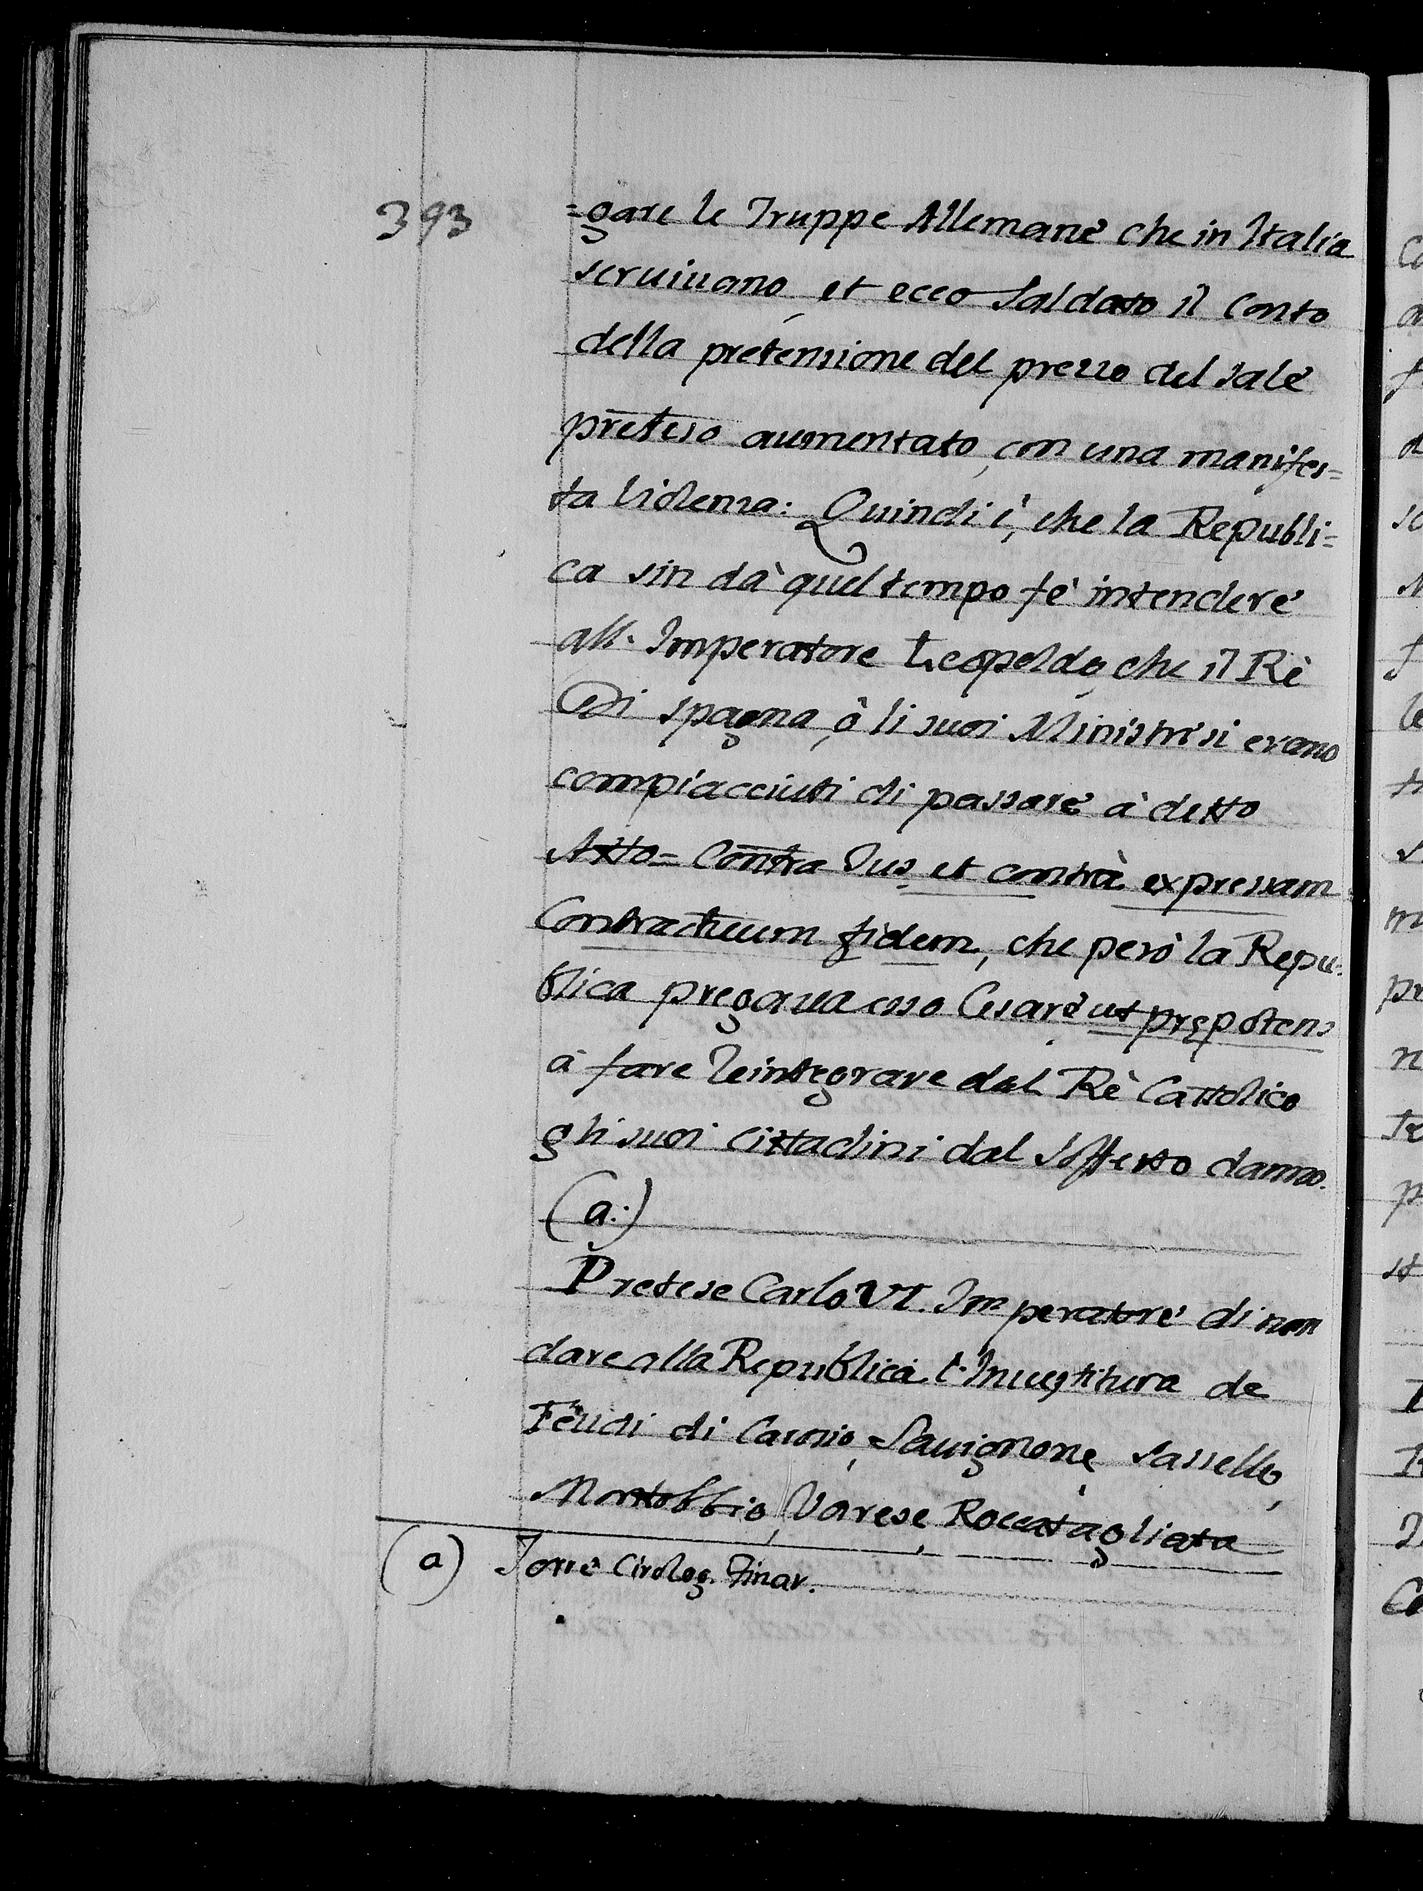 393
=gare le Truppe Allemane che in Italia
seruiuano, et ecco saldato il conto
della pretensione del prezzo del sale
preteso aumentato, con una manifes=
ta violenza: Quindi è, che la Republi=
ca sin dà quel tempo fè intendere
all' Imperatore Leopoldo, che il Rè
Di Spagna, ò li suoi Ministri si erano
compiacciuti di passare à detto
Atto= Contra Ius, et contrà expressam
Contractuum fidem, che però la Repu=
blica pregaua esso Cesare ut prępotens
à fare reintegrare dal Rè Cattolico
gli suoi cittadini dal sofferto danno.
(a:)
Pretese Carlo VI. Imperatore di non
dare alla Republica l'Inuestitura de
Feudi di Carosio, Sauignone, Sassello,
Montobbio, Varese, Roccatagliata
(a) Torre Cirolog. Finar.